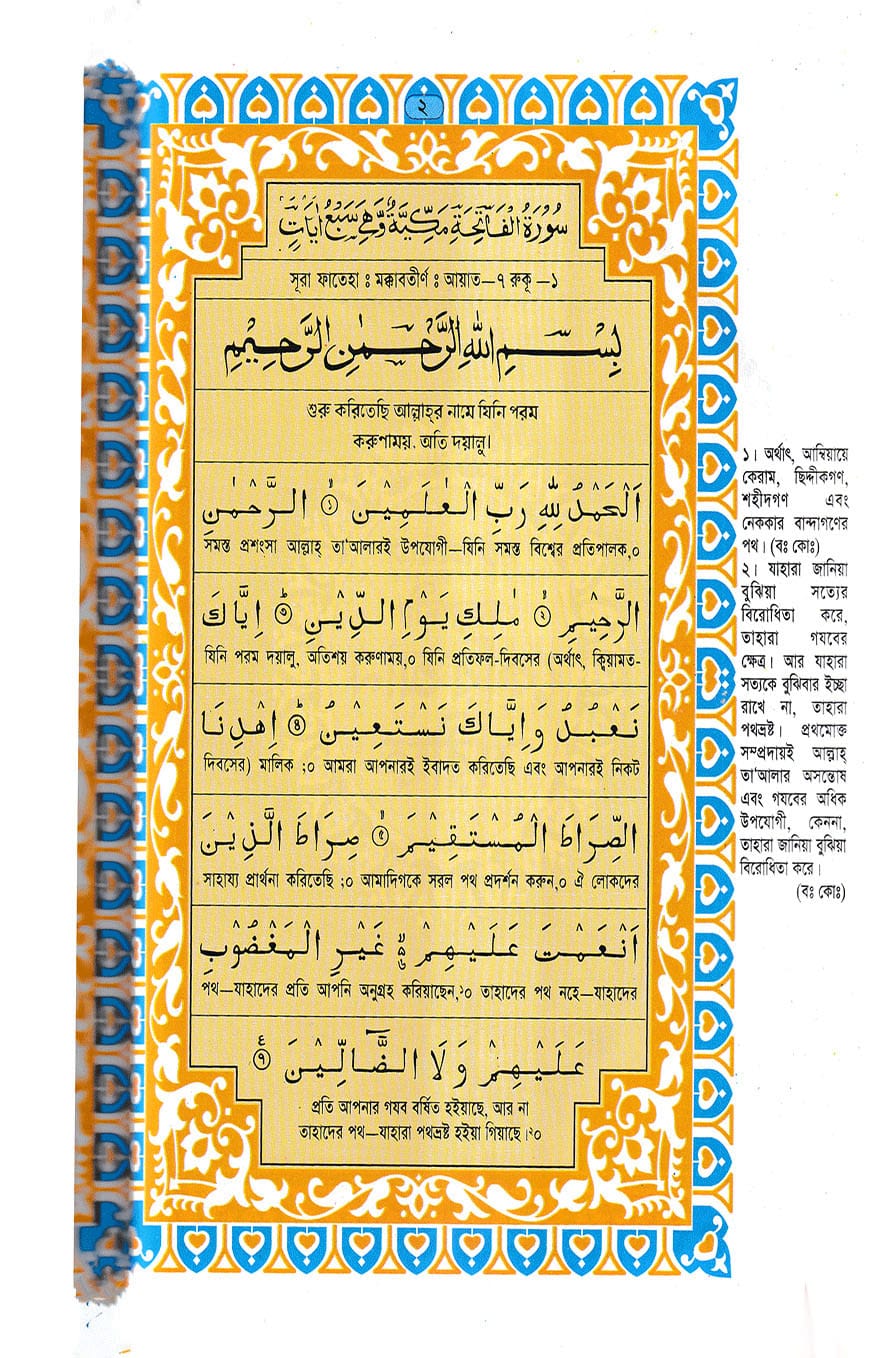 ২
سُوْرَةُ الْفَاتِحَةِ مَكِّيَّةٌ وَّهِيَ سَبْعُ اٰيَاتٍ
সূরা ফাতেহা ঃ মক্কাবতীর্ণ ঃ আয়াত–৭ রুকূ –১
بِسْمِ اللهِ الرَّحْمٰنِ الرَّحِيْمِ
শুরু করিতেছি আল্লাহ্‌র নামে যিনি পরম
করুণাময়. অতি দয়ালু।
اَلْحَمْدُ لِلّٰهِ رَبِّ الْعٰلَمِيْنَ ۝۱ الرَّحْمٰنِ
সমস্ত প্রশংসা আল্লাহ্ তা'আলারই উপযোগী—যিনি সমস্ত বিশ্বের প্রতিপালক,০
الرَّحِيْمِ ۝۲ مٰلِكِ يَوْمِ الدِّيْنِ ۝۳ اِيَّاكَ
যিনি পরম দয়ালু, অতিশয় করুণাময়,০ যিনি প্রতিফল-দিবসের (অর্থাৎ, ক্বিয়ামত-
نَعْبُدُ وَاِيَّاكَ نَسْتَعِيْنُ ۝۴ اِهْدِنَا
দিবসের) মালিক ;০ আমরা আপনারই ইবাদত করিতেছি এবং আপনারই নিকট
الصِّرَاطَ الْمُسْتَقِيْمَ ۝۵ صِرَاطَ الَّذِيْنَ
সাহায্য প্রার্থনা করিতেছি ;০ আমাদিগকে সরল পথ প্রদর্শন করুন,০ ঐ লোকদের
اَنْعَمْتَ عَلَيْهِمْ ۝۶ غَيْرِ الْمَغْضُوْبِ
পথ—যাহাদের প্রতি আপনি অনুগ্রহ করিয়াছেন,১০ তাহাদের পথ নহে—যাহাদের
عَلَيْهِمْ وَلَا الضَّآلِّيْنَ ۝۷
প্রতি আপনার গযব বর্ষিত হইয়াছে, আর না
তাহাদের পথ—যাহারা পথভ্রষ্ট হইয়া গিয়াছে।২০
১। অর্থাৎ, আম্বিয়ায়ে
কেরাম, ছিদ্দীকগণ,
শহীদগণ এবং
নেককার বান্দাগণের
পথ। (বঃ কোঃ)
২। যাহারা জানিয়া
বুঝিয়া সত্যের
বিরোধিতা করে,
তাহারা গযবের
ক্ষেত্র। আর যাহারা
সত্যকে বুঝিবার ইচ্ছা
রাখে না, তাহারা
পথভ্রষ্ট। প্রথমোক্ত
সম্প্রদায়ই আল্লাহ্
তা'আলার অসন্তোষ
এবং গযবের অধিক
উপযোগী, কেননা,
তাহারা জানিয়া বুঝিয়া
বিরোধিতা করে।
(বঃ কোঃ)